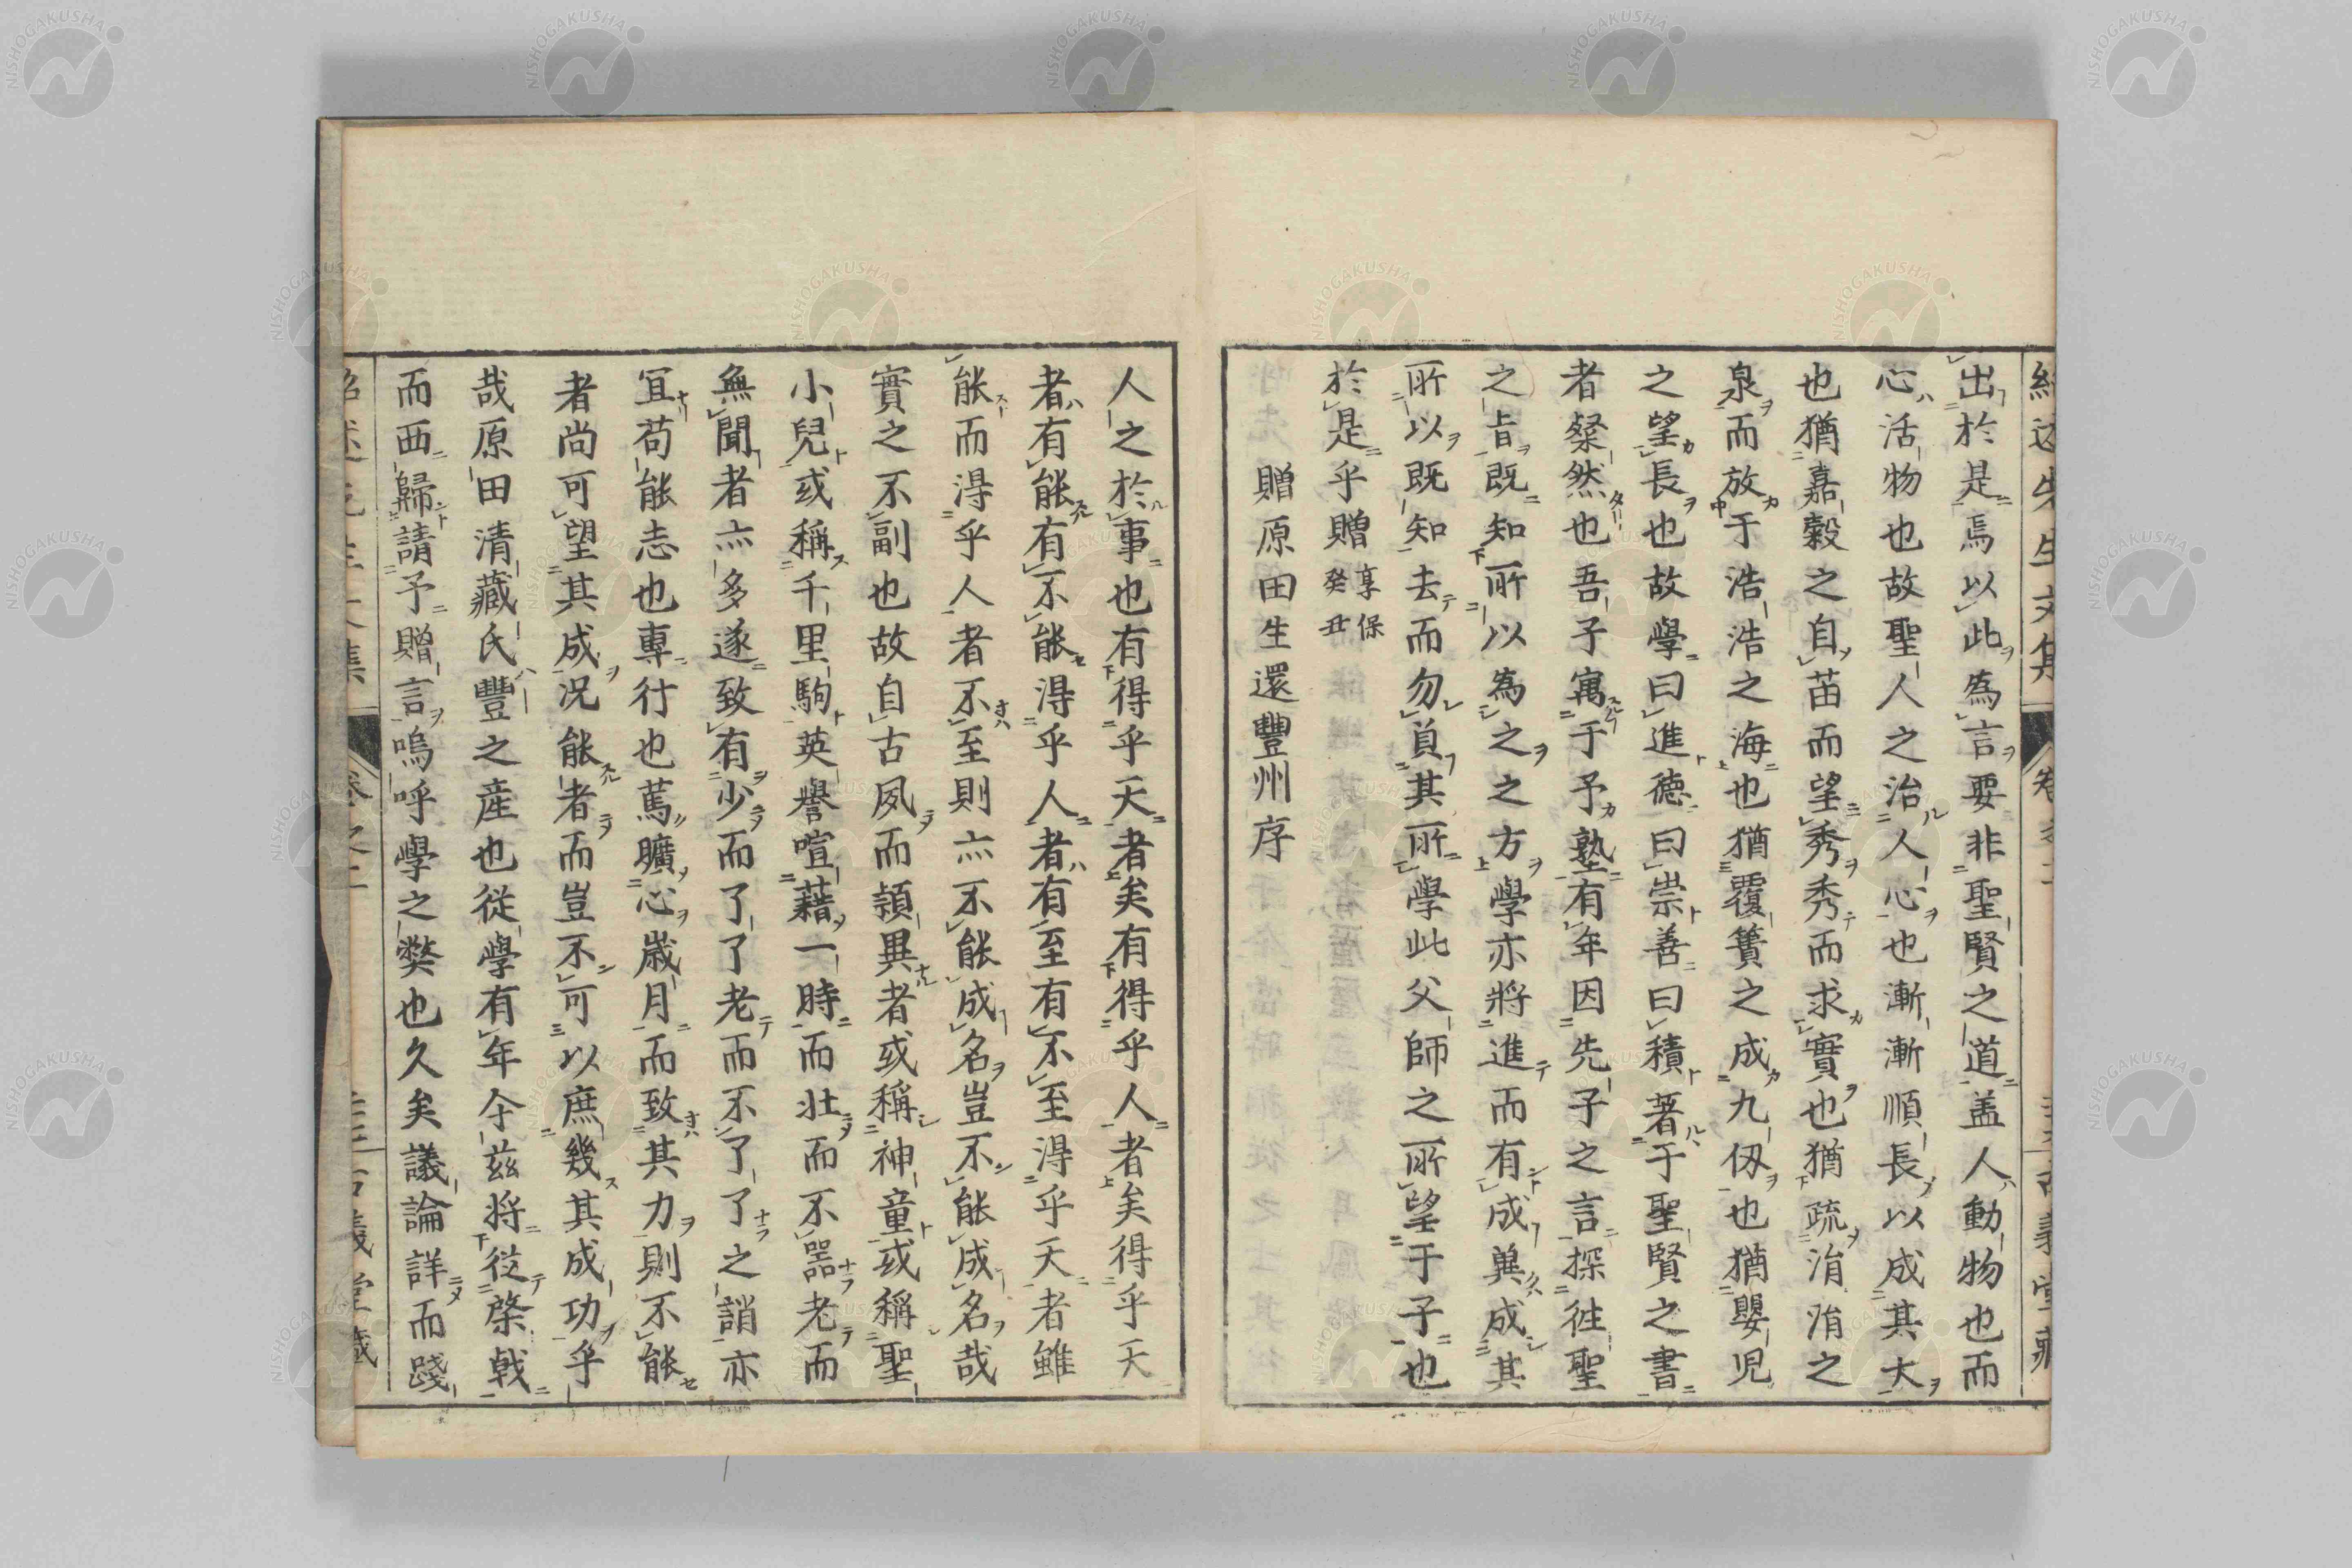 出於是焉以此為言要非聖賢之道盖人動物也而
心活物也故聖人之治人心也漸漸順長以成其大
也猶嘉穀之自苗而望秀秀而求實也猶疏涓涓之
泉而放于浩浩之海也猶覆簣之成九仭也猶嬰児
之望長也故學曰進德曰崇善曰積著于聖賢之書
者粲然也吾子寓于予塾有年因先子之言探徃聖
之旨既知所以為之之方學亦將進而有成兾成其
所以既知去而勿負其所學此父師之所望于子也
於是乎贈享保癸丑
贈原田生還豐州序
人之於事也有得乎天者矣有得乎人者矣得乎天
者有能有不能得乎人者有至有不至得乎天者雖
能而得乎人者不至則亦不能成名豈不能成名哉
實之不副也故自古夙而頴異者或稱神童或稱聖
小兒或稱千里駒英譽喧藉一時而壯而不器老而
無聞者亦多遂致有少而了了老而不了了之誚亦
冝苟能志也專行也篤曠心歲月而致其力則不能
者尚可望其成况能者而豈不可以庶幾其成功乎
哉原田清藏氏豐之産也從學有年今兹将從棨戟
而西歸請予贈言嗚呼學之弊也久矣議論詳而踐
NISHOGAKUSHA